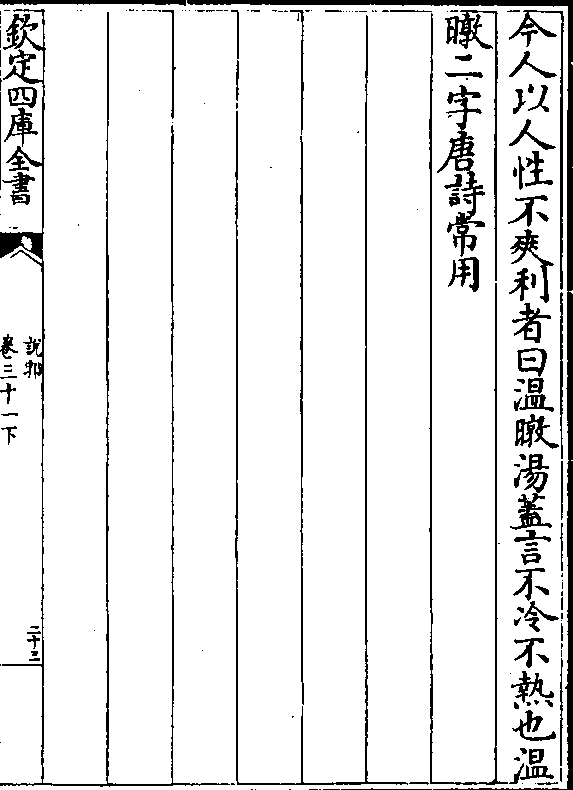 今人以人性不爽利者曰溫暾湯蓋言不冷不熱也溫
暾二字唐詩常用
欽定四庫全書
說郛
卷三十一下
二十三